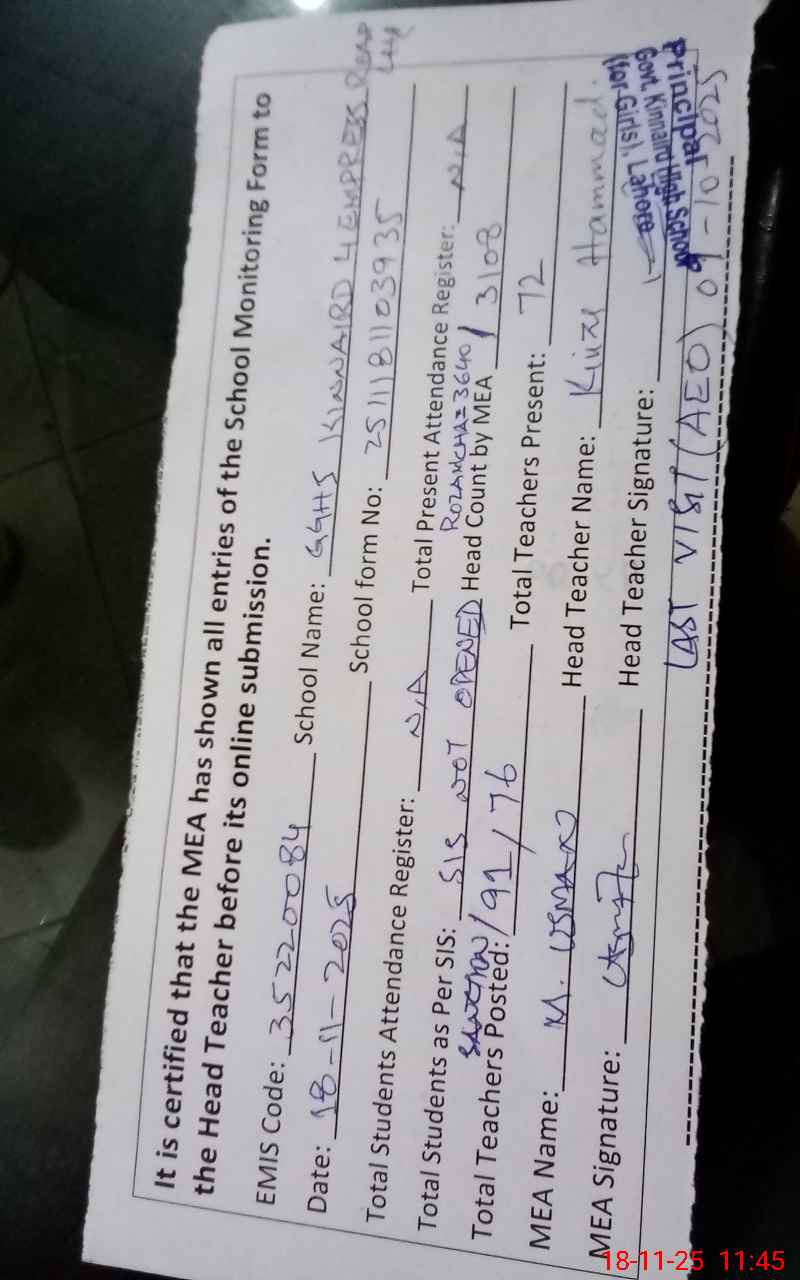 It is certified that the MEA has shown all entries of the School Monitoring Form to
the Head Teacher before its online submission.
EMIS Code: 35220084 School Name: GGHS KINNAIRD 4 EMPRESS ROAD
LHR
Date: 18-11-2025 School form No: 2511181103935
Total Students Attendance Register: N/A Total Present Attendance Register: N/A
ROZAMCHA=3640
Total Students as Per SIS: SIS NOT OPENED Head Count by MEA / 3108
SANCTION
Total Teachers Posted: / 91 / 76 Total Teachers Present: 72
MEA Name: M. USMAN Head Teacher Name: Hammad.
MEA Signature: Head Teacher Signature:
Principal
Govt. Kinnaird High School
(for Girls), Lahore
LAST VISIT (AEO) 09-10-2025
18-11-25 11:45